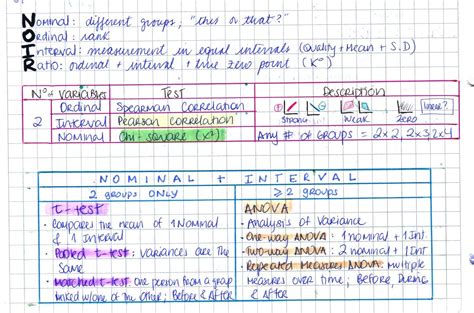 Nominal: different groups; "this or that?"
Ordinal: rank
Interval: measurement in equal intervals (Quality + Mean + S.D)
Ratio: ordinal + interval + true zero point (K°)
Nº of Variables Test Description
2
Ordinal Spearman Correlation
Interval Pearson Correlation
Strong Weak Zero Linear?
Nominal Chi-square (x²) Any # of Groups = 2x2, 2x3, 2x4
NOMINAL + INTERVAL
2 groups ONLY
t-test
• Compares the mean of 1 Nominal
& 1 Interval
• Pooled t-test: variances are the
same
• Matched t-test: one person from a group
linked w/ one of the other; Before & After
≥ 2 groups
ANOVA
• Analysis of Variance
• One-way ANOVA: 1 nominal + 1 Int
• Two-way ANOVA: 2 nominal + 1 Int
• Repeated Measures ANOVA: multiple
measures over time; Before, During
& After